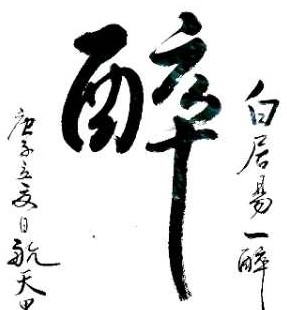 白居易一醉
醉
庚子立夏日航天